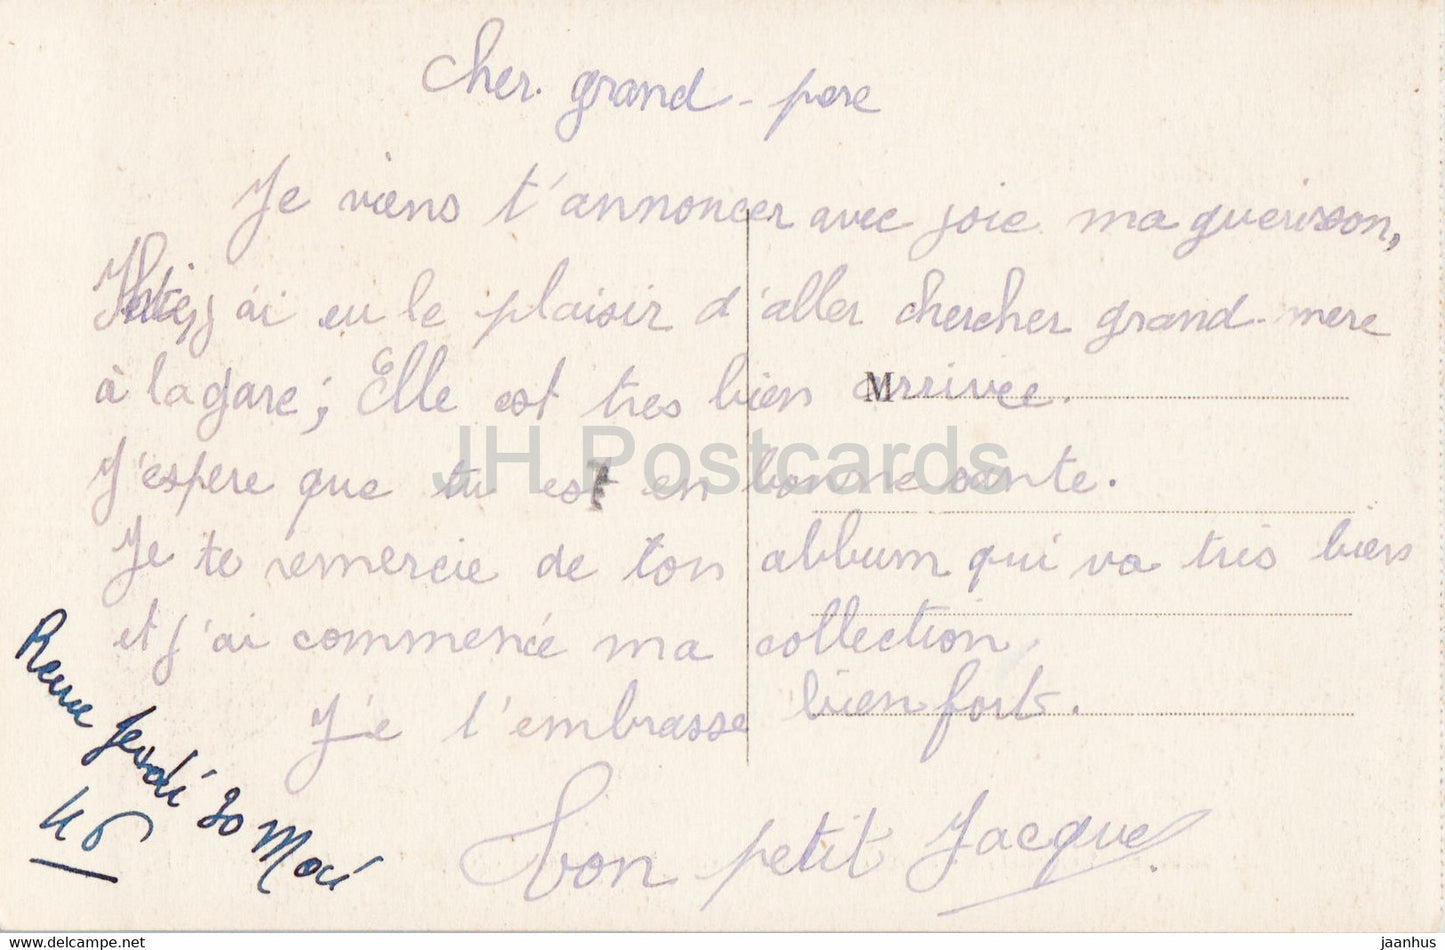 Cher grand-pere
Je viens t'annoncer avec joie ma guerison,
j'ai eu le plaisir d'aller chercher grand-mere
à la gare; Elle est tres bien arrivee.
M
JH Postcards
J'espere que tu est en bonne sante.
Je te remercie de ton album qui va très bien
et j'ai commencé ma collection.
Je t'embrasse bien fort.
Ton petit Jacque
Jeudi 30 Mai
46
www.delcampe.net
jaanhus